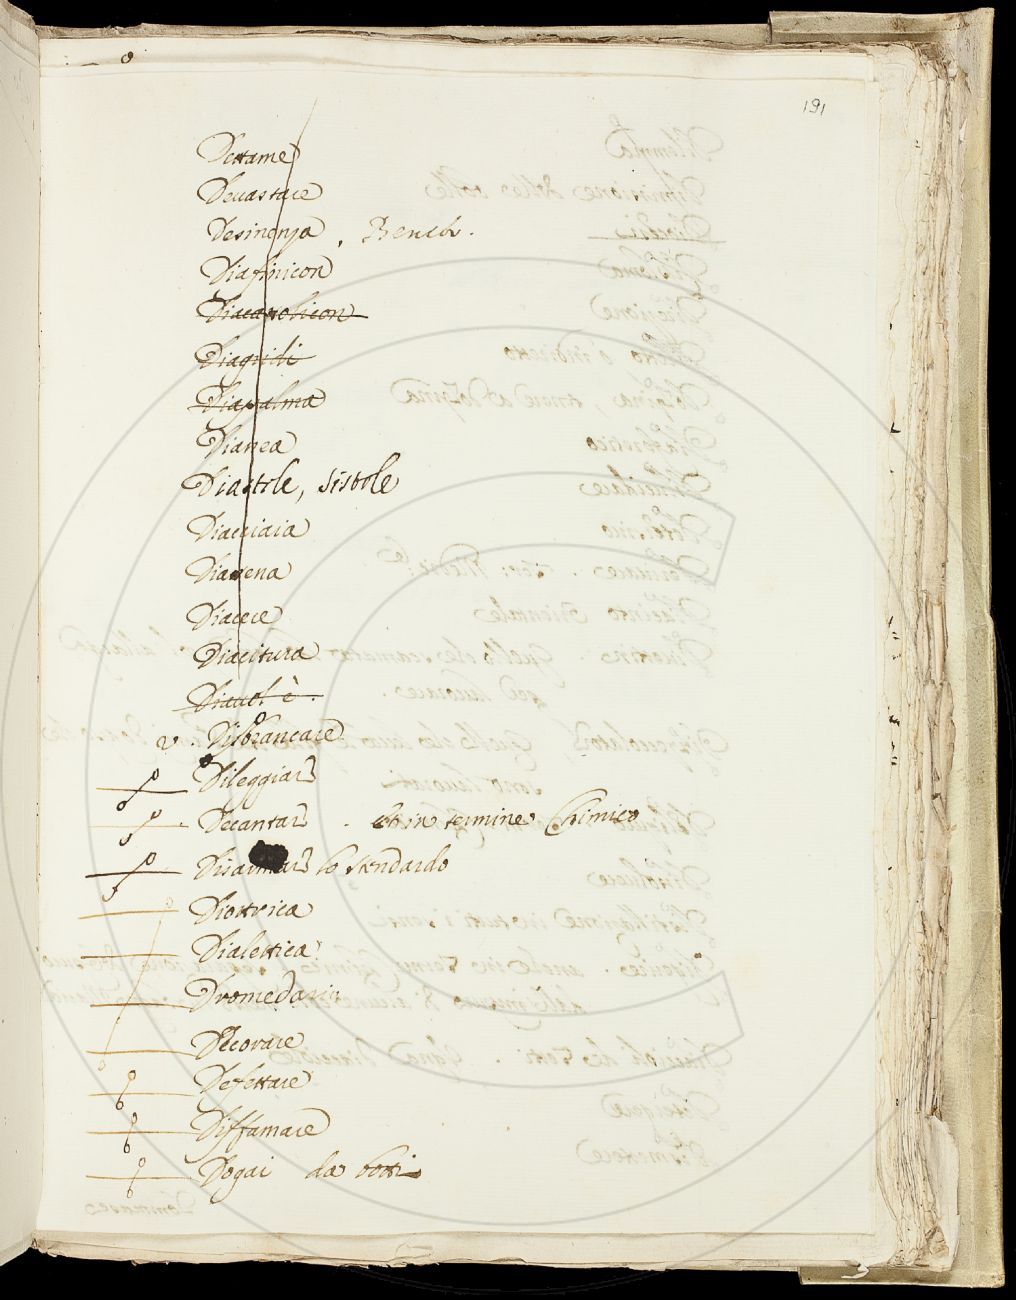 191
Dettame
Devastare
Desinenza, Bench.
Diafinicon
Diacattolicon
Diagridi
Diapalma
Dianea
Diastole, sistole
Diacciaia
Diavena
Diacere
Diacitura
Diavol è.
v. Disbrancare
Dileggiare
Decantare . termine Chimico
Disarmare lo stendardo
Diottrica
Dialettica
Dromedario
Decorare
Defettare
Diffamare
Dogai da botti